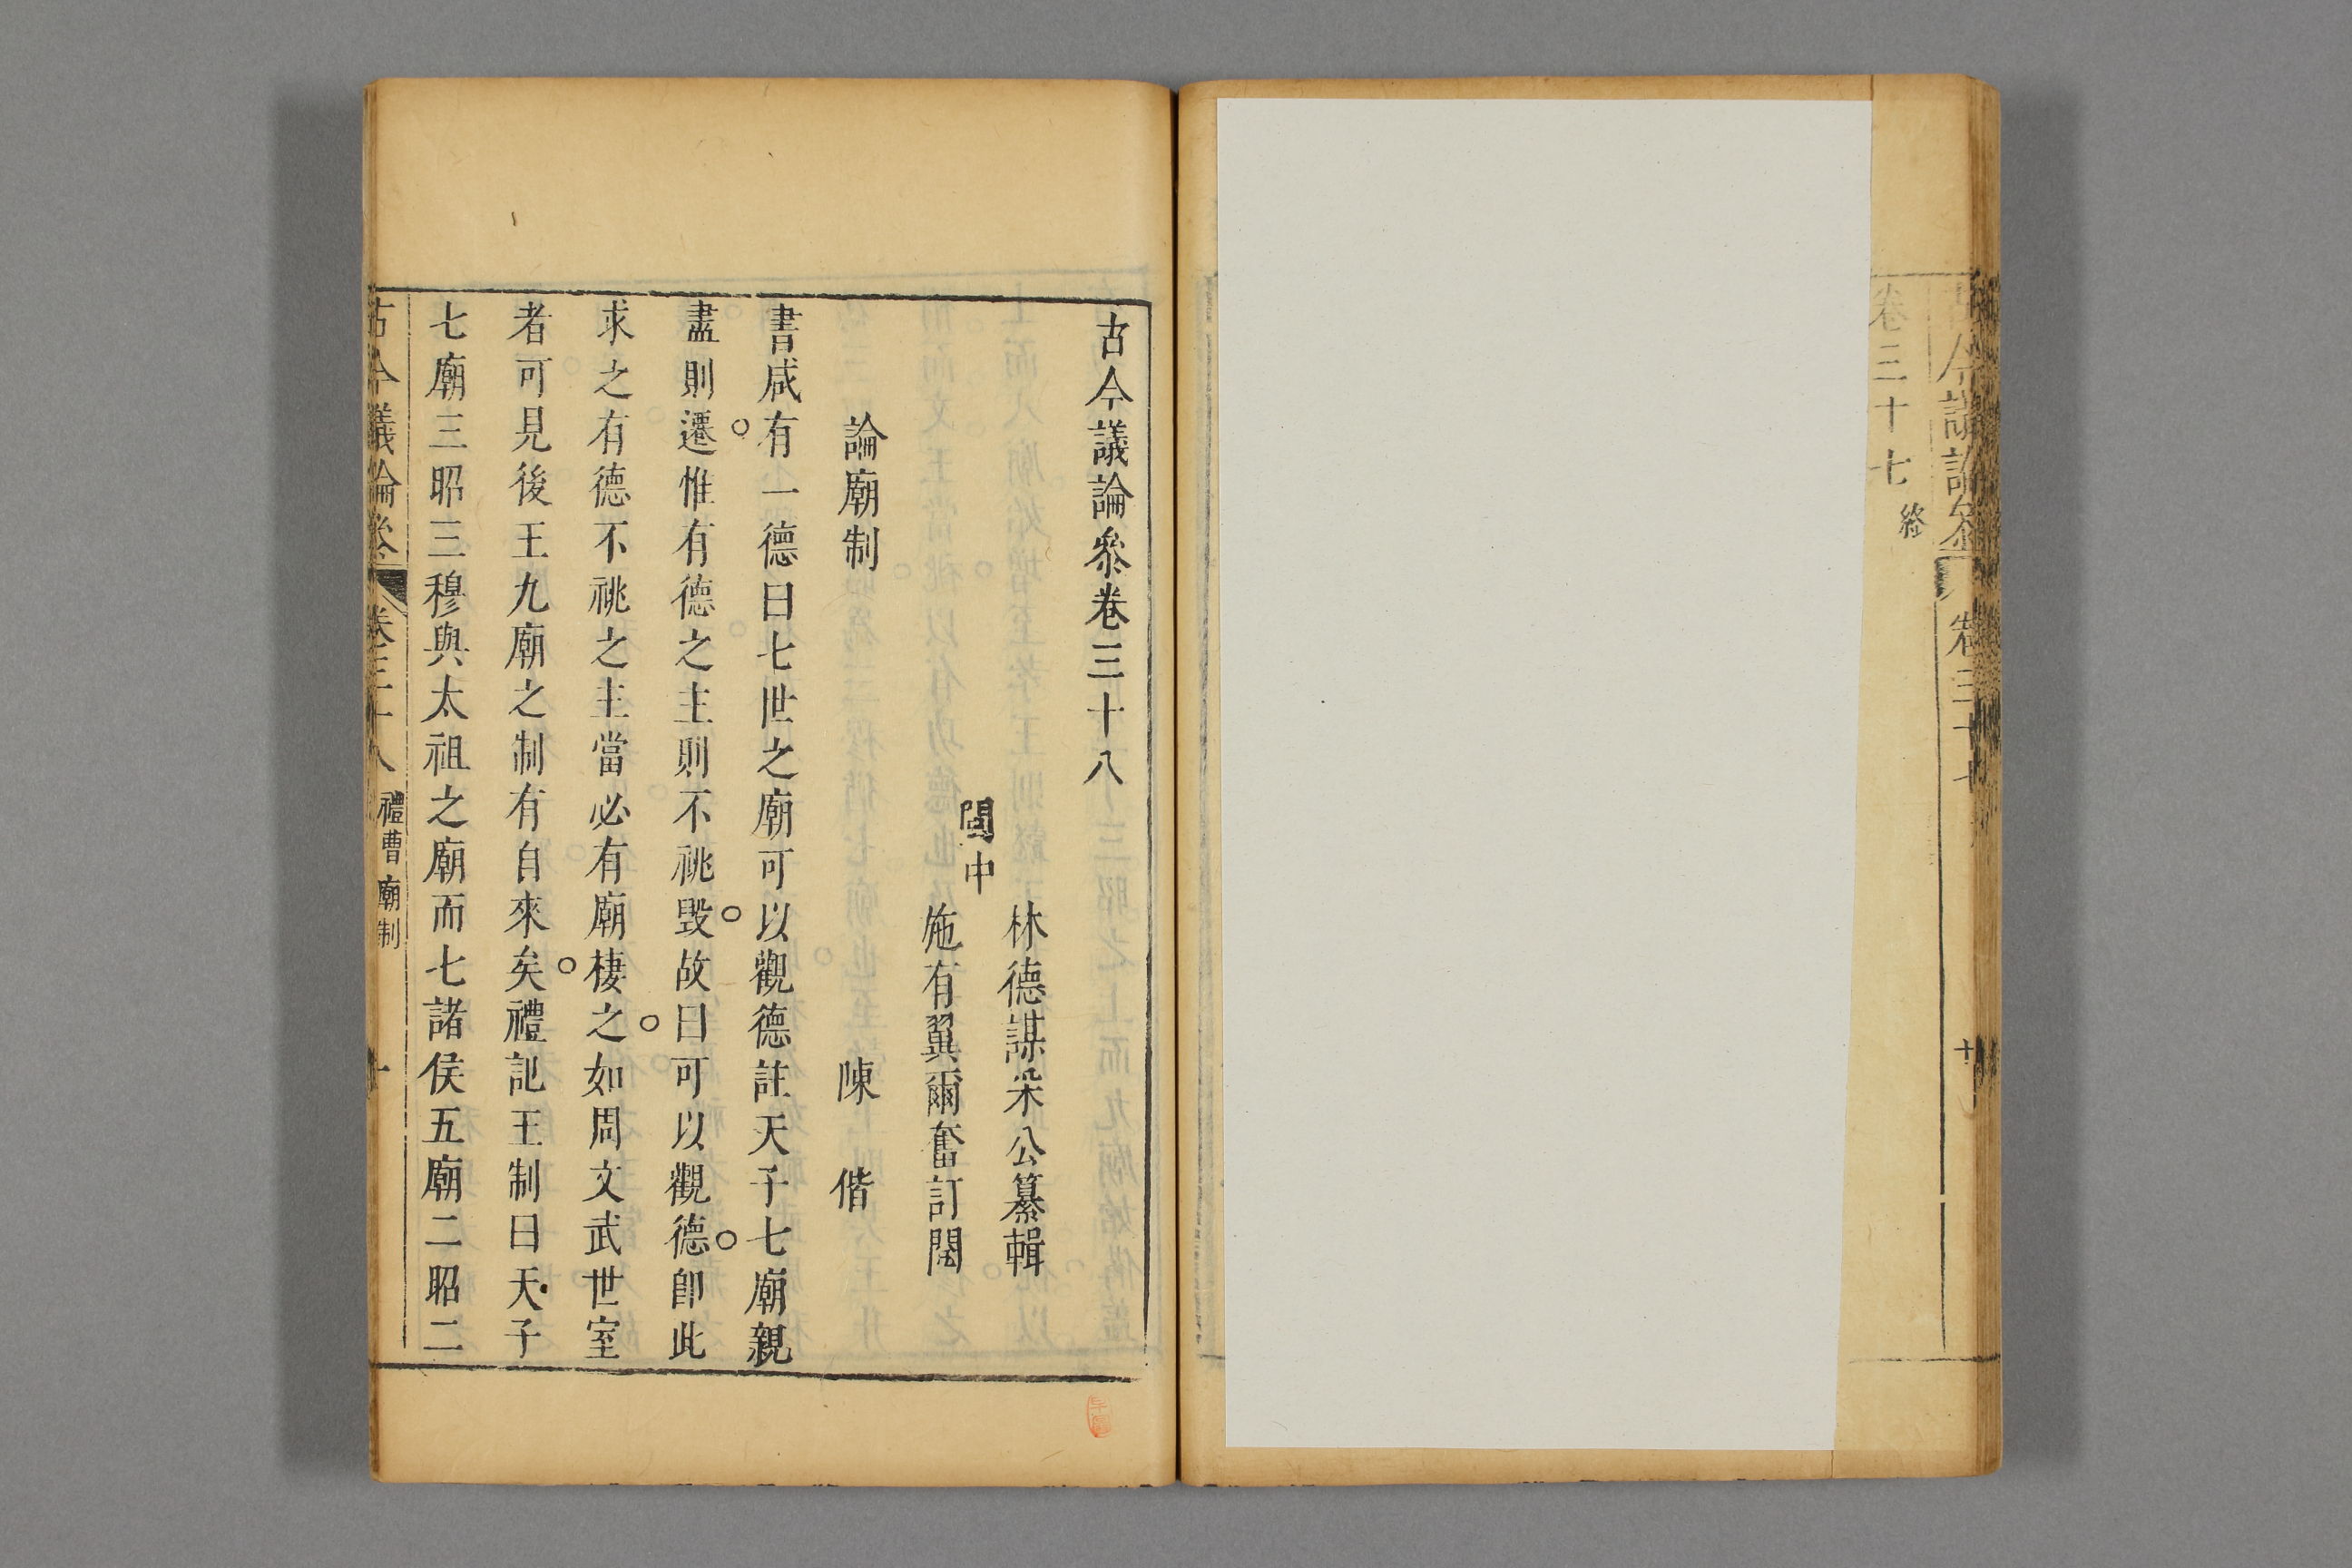 卷三十七 終
古今議論叅卷三十八
閩中
林德謀采公纂輯
施有翼爾奮訂閱
論廟制 陳偕
書咸有一德曰七世之廟可以觀德註天子七廟親
盡則遷惟有德之主則不祧毀故曰可以觀德卽此
求之有德不祧之主當必有廟棲之如周文武世室
者可見後王九廟之制有自來矣禮記王制曰天子
七廟三昭三穆與太祖之廟而七諸侯五廟二昭二
古今議論叅 卷三十八 禮曹 廟制 一